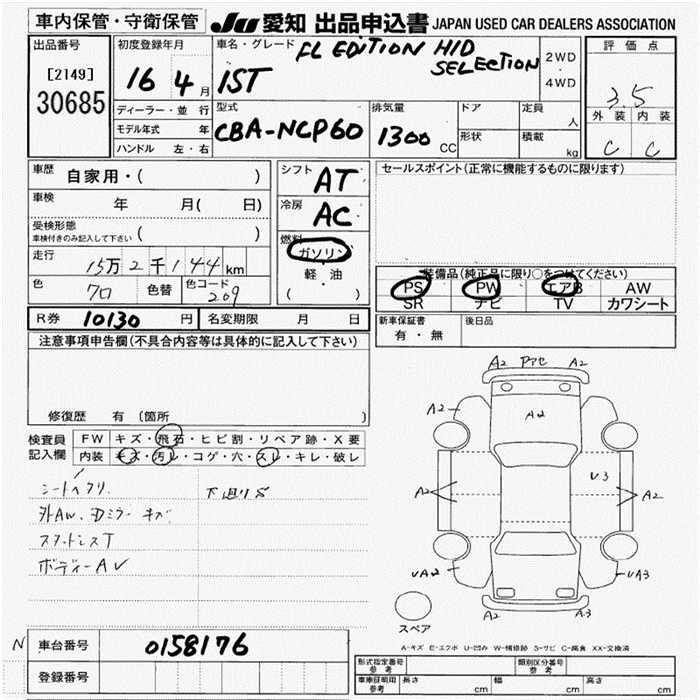 車内保管・守衛保管 JU 愛知 出品申込書 JAPAN USED CAR DEALERS ASSOCIATION
出品番号
[2149]
30685
初度登録年月
16 4月
車名・グレード FL EDITION HID SELECTION
IST
2WD
・
4WD
評価点
3.5
外装 内装
C C
ディーラー・並行
モデル年式 年
ハンドル 左・右
型式
CBA-NCP60
排気量
1300 CC
ドア
定員 人
形状
積載 kg
車歴 自家用・( )
車検 年 月( 日)
受検形態
車検付きのみ記入して下さい ( )
走行 15万2千144km
色 クロ 色替 色コード 209
シフト AT
冷房 AC
燃料
ガソリン
・
軽・油
( )
セールスポイント(正常に機能するものに限ります)
装備品(純正品に限り○をつけてください)
PS PW エアB AW
SR ナビ TV カワシート
R券 10130 円 名変期限 月 日
新車保証書
有・無
後日品
注意事項申告欄(不具合内容等は具体的に記入して下さい)
修復歴 有 (箇所 )
検査員
記入欄
FW キズ・飛石・ヒビ割・リペア跡・X要
内装 キズ・汚レ・コゲ・穴・スレ・キレ・破レ
シートヘタリ 下廻りS
外AW、Dミラーキズ
スタッドレスT
ボディーAU
A2 アセ A2
A2 A2 A2
A2 U3 A2
UA2 UA3
A2 A3
スペア
A-キズ E-エクボ U-凹み W-補修跡 S-サビ C-腐食 XX-交換済
N 車台番号 0158176
登録番号
形式指定番号
参考
類別区分番号
参考
車庫証明用
参考
長さ cm 幅 cm 高さ cm